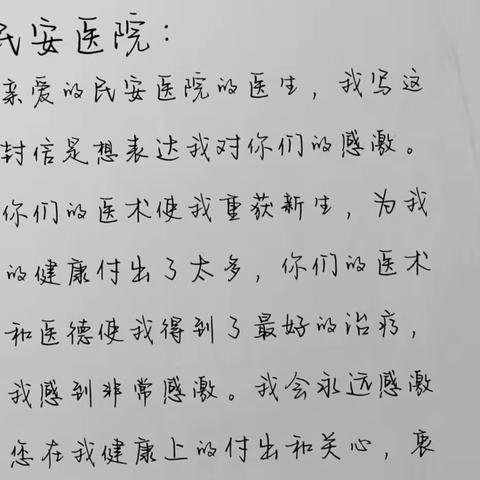 民安医院：
亲爱的民安医院的医生，我写这
封信是想表达我对你们的感激。
你们的医术使我重获新生，为我
的健康付出了太多，你们的医术
和医德使我得到了最好的治疗，
我感到非常感激。我会永远感激
您在我健康上的付出和关心，衷